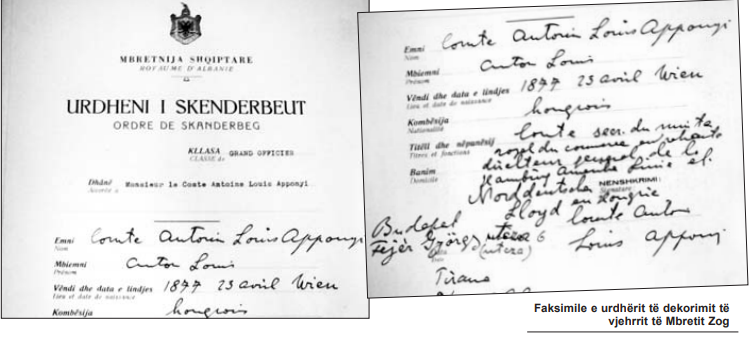 MBRETNIJA SHQIPTARE
ROYAUME D'ALBANIE
URDHENI I SKENDERBEUT
ORDRE DE SKANDERBEG
KLLASA GRAND OFFICIER
CLASSE de
Dhânë Monsieur le Comte Antoine Louis Apponyi.
Accordé à
Emni Comte Antoin Louis Apponyi
Nom
Mbiemni Anton Louis
Prénom
Vêndi dhe data e lindjes 1877 23 avril Wien
Lieu et date de naissance
Kombësija hongrois
Emni Comte Antoin Louis Apponyi
Nom
Mbiemni Anton Louis
Prénom
Vêndi dhe data e lindjes 1877 23 avril Wien
Lieu et date de naissance
Kombësija hongrois
Nationalité
Titêll dhe nëpunësij Comte secr. du
Titres et fonctions royal du commerce en
Banim directeur general de la
Domicile Hamburg Amerika Linie et
Norddeutscher NENSHKRIMI:
Lloyd en Hongrie
Budapest Comte Anton
Fejér György utcza 6 Louis Apponyi
(utcza)
Tirana
Faksimile e urdhërit të dekorimit të
vjehrrit të Mbretit Zog